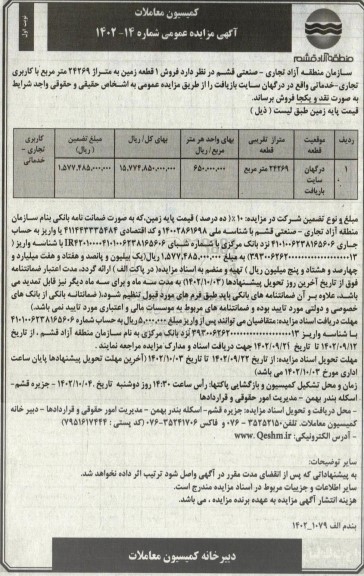 کمیسیون معاملات
آگهی مزایده عمومی شماره ۱۴- ۱۴۰۲
نوبت اول
منطقه آزاد قشم
سازمان منطقه آزاد تجاری - صنعتی قشم در نظر دارد فروش ۱ قطعه زمین به متراژ ۲۴۲۶۹ متر مربع با کاربری
تجاری-خدماتی واقع در درگهان سایت بازیافت را از طریق مزایده عمومی به اشخاص حقیقی و حقوقی واجد شرایط
به صورت نقد و یکجا فروش برساند.
قیمت پایه زمین طبق لیست ( ذیل )
ردیف
موقعیت قطعه
متراژ تقریبی قطعه
بهای واحد هر متر مربع / ریال
بهای کل/ ریال
مبلغ تضمین ( ریال)
کاربری تجاری - خدماتی
۱
درگهان سایت بازیافت
۲۴۲۶۹ متر مربع
۶۵۰،۰۰۰
۱۵،۷۷۴،۸۵۰،۰۰۰
۱،۵۷۷،۴۸۵،۰۰۰
مبلغ و نوع تضمین شرکت در مزایده: ۱۰٪ (ده درصد) قیمت پایه زمین،که به صورت ضمانت نامه بانکی بنام سازمان
منطقه آزاد تجاری - صنعتی قشم با شناسه ملی ۱۴۰۰۲۸۶۱۶۹۸ و کد اقتصادی ۴۱۱۴۴۳۳۳۵۴۸۴ یا واریز به حساب
جاری ۴۱۰۱۰۰۶۲۳۸۱۶۵۶۰۶ نزد بانک مرکزی با شماره شبای
به مبلغ ۱،۵۷۷،۴۸۵،۰۰۰ ریال(یک بیلیون و پانصد و هفتاد و هفت میلیارد و
چهارصد و هشتاد و پنج میلیون ریال ) تهیه و منضم به اسناد مزایده( در پاکت الف ) ارائه گردد، مدت اعتبار ضمانتنامه
فوق از تاریخ آخرین روز تحویل پیشنهادها (۱۴۰۲/۱۰/۰۳) به مدت سه ماه و برای سه ماه دیگر نیز قابل تمدید می
باشد، علاوه بر آن ضمانتنامه های بانکی باید طبق فرم های مورد قبول تنظیم شود،( ضمانتنامه بانکی از بانک های
خصوصی و دولتی مورد تایید بوده و ضمانتنامه های مربوط به موسسات مالی و اعتباری مورد تایید نمی باشد)
مهلت دریافت اسناد مزایده: متقاضیان می توانند پس از واریز مبلغ ۵،۰۰۰،۰۰۰ ریال به حساب شماره ۴۱۰۱۰۰۶۲۳۸۱۶۵۶۰۶
نزد بانک مرکزی به نام سازمان منطقه آزاد قشم ، از تاریخ
۱۴۰۲/۰۹/۱۲ تا تاریخ ۱۴۰۲/۰۹/۲۱ جهت دریافت اسناد و مدارک مزایده مراجعه نمایند .
مهلت تحویل اسناد مزایده: از تاریخ ۱۴۰۲/۰۹/۲۲ تا تاریخ ۱۴۰۲/۱۰/۰۳ (آخرین مهلت تحویل پیشنهادها پایان ساعت
اداری مورخ ۱۴۰۲/۱۰/۰۳ می باشد)
زمان و محل تشکیل کمیسیون و بازگشایی پاکتها: رأس ساعت ۱۴:۳۰ روز دوشنبه تاریخ ۱۴۰۲/۱۰/۰۴ - جزیره قشم-
اسکله بندر بهمن - مدیریت امور حقوقی و قراردادها
- محل دریافت و تحویل اسناد مزایده: جزیره قشم- اسکله بندر بهمن - مدیریت امور حقوقی و قراردادها - دبیر خانه
کمیسیون معاملات. تلفن: ۳۵۲۵۲۱۵۰-۰۷۶ و فاکس ۳۵۲۴۱۷۰۶-۰۷۶ (کد پستی : ۷۹۵۱۶۱۷۴۴۴)
- آدرس الکترونیکی: www. Qeshm.ir
سایر توضیحات:
به پیشنهاداتی که پس از انقضای مدت مقرر در آگهی واصل شود ترتیب اثر داده نخواهد شد.
سایر اطلاعات و جزییات مربوط در اسناد مزایده مندرج است.
هزینه انتشار آگهی مزایده به عهده برنده مزایده ، می باشد.
بندم الف ۱۰۷۹_۱۴۰۲
دبیرخانه کمیسیون معاملات